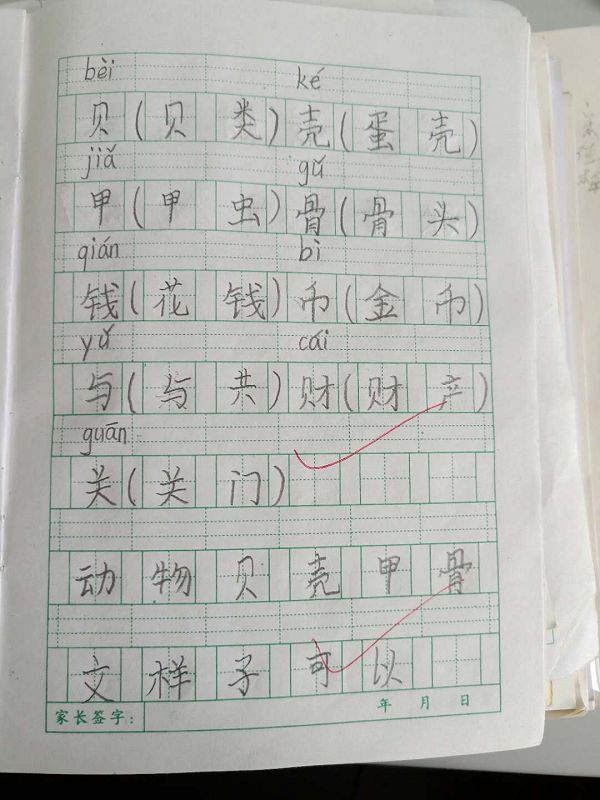 bèi ké
贝(贝类)壳(蛋壳)
jiǎ gǔ
甲(甲虫)骨(骨头)
qián bì
钱(花钱)币(金币)
yǔ cái
与(与共)财(财产)
guān
关(关门)
动物贝壳甲骨
文样子可以
家长签字: 年 月 日